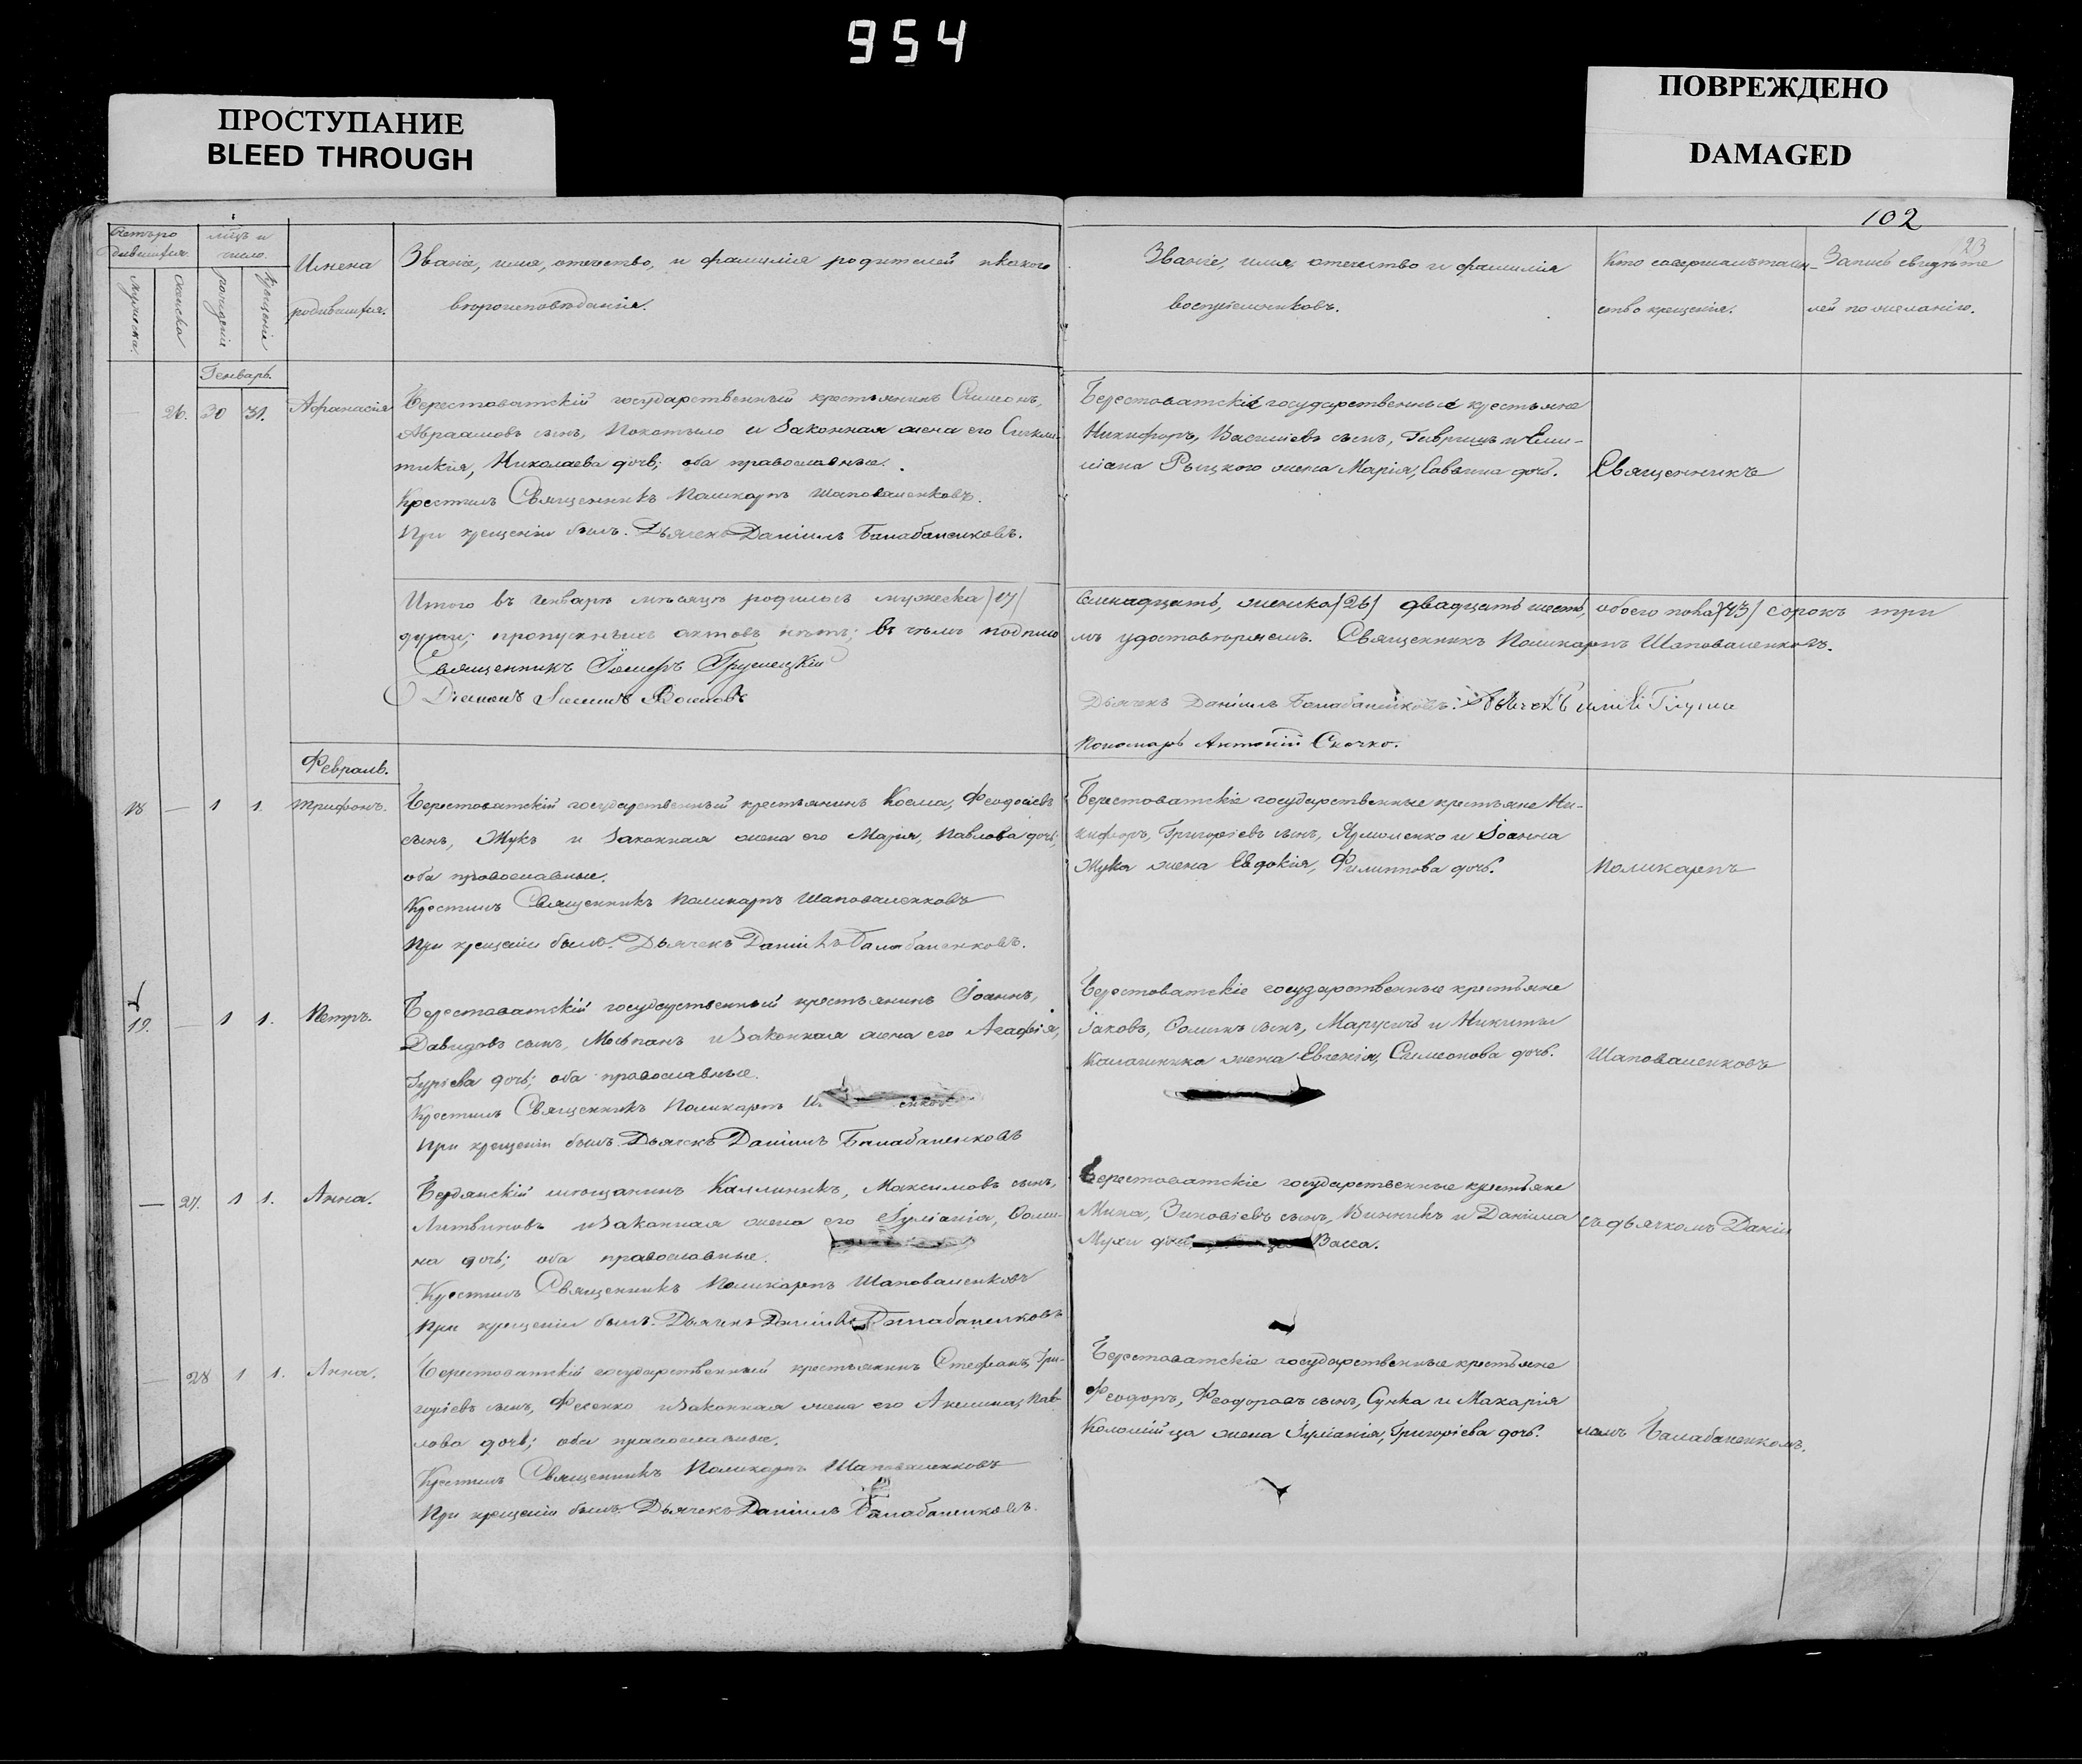 954
ПРОСТУПАНИЕ
BLEED THROUGH
ПОВРЕЖДЕНО
DAMAGED
102
23
Счетъ ро
дившихся.
Мѣсяцъ и
число.
мужеска.
женска
рожденія
крещенія
Имена
родившихся.
Званіе, имя, отечество, и фамилія родителей и какого
вѣроисповѣданія.
Званіе, имя, отечество и фамилія
воспріемниковъ.
Кто совершалъ таин-
ство крещенія.
Запись свидѣте
лей по желанію.
Генварь.
26. 30 31. Афанасія
Берестоватскій государственный крестьянинъ Симеонъ,
Авраамовъ сынъ, Покотыло и законная жена его Синкли-
тикія, Николаева дочь; оба православные.
Крестилъ Священникъ Поликарпъ Шаповаленковъ.
При крещеніи былъ. Дьячекъ Даніилъ Балабаненковъ.
Берестоватскіе государственные крестьяне
Никифоръ, Василіевъ сынъ, Гаврищъ и Еми-
ліана Рыцкого жена Марія, Саввина дочь.
Священникъ
Итого въ Генварѣ мѣсяцѣ родилось мужеска /17/
семнадцать, женска /26/ двадцать шесть, обоего пола /43/ сорокъ три
души; пропускныхъ актовъ нѣтъ; въ чемъ подписо
мъ удостовѣряемъ. Священникъ Поликарпъ Шаповаленковъ.
Священникъ Грушецкій
Діаконъ
Дьячекъ Даніилъ Балабаненковъ.
Пономарь Антоній Скочко.
Февраль.
18 — 1 1. Трифонъ.
Берестоватскій государственный крестьянинъ Косма, Феодосіевъ
сынъ, Жукъ и законная жена его Марія, Павлова дочь;
оба православные.
Крестилъ Священникъ Поликарпъ Шаповаленковъ
При крещеніи былъ. Дьячекъ Даніилъ Балабаненковъ.
Берестоватскіе государственные крестьяне Ни-
кифоръ, Григоріевъ сынъ, Ярмоленко и Іоанна
Жука жена Евдокія, Филиппова дочь.
Поликарпъ
19. — 1 1. Петръ.
Берестоватскій государственный крестьянинъ Іоаннъ,
Давидовъ сынъ, и законная жена его Агафія,
Гуріева дочь; оба православные.
Крестилъ Священникъ Поликарпъ Ш енковъ
При крещеніи былъ. Дьячекъ Даніилъ Балабаненковъ
Берестоватскіе государственные крестьяне
Іаковъ, Ѳоминъ сынъ, Марусичъ и Никиты
Калашника жена Евгенія, Симеонова дочь.
Шаповаленковъ
— 27. 1 1. Анна.
Бердянскій мѣщанинъ Каллиникъ, Максимовъ сынъ,
Литвиновъ и законная жена его Іуліанія, Ѳоми-
на дочь; оба православные.
Крестилъ Священникъ Поликарпъ Шаповаленковъ
При крещеніи былъ. Дьячекъ Даніилъ Балабаненковъ
Берестоватскіе государственные крестьяне
Мина, Зиновіевъ сынъ, Винникъ и Даніила
Мухи дочь Васса.
съ дьячкомъ Даніи
— 28 1 1. Анна.
Берестоватскій государственный крестьянинъ Стефанъ, Гри-
горіевъ сынъ, Фесенко и законная жена его Акилина, Пав-
лова дочь; оба православные.
Крестилъ Священникъ Поликарпъ Шаповаленковъ
При крещеніи былъ. Дьячекъ Даніилъ Балабаненковъ.
Берестоватскіе государственные крестьяне
Феодоръ, Феодоровъ сынъ, Сучка и Макарія
Коломійца жена Іуліанія, Григоріева дочь.
ломъ Балабаненкомъ.